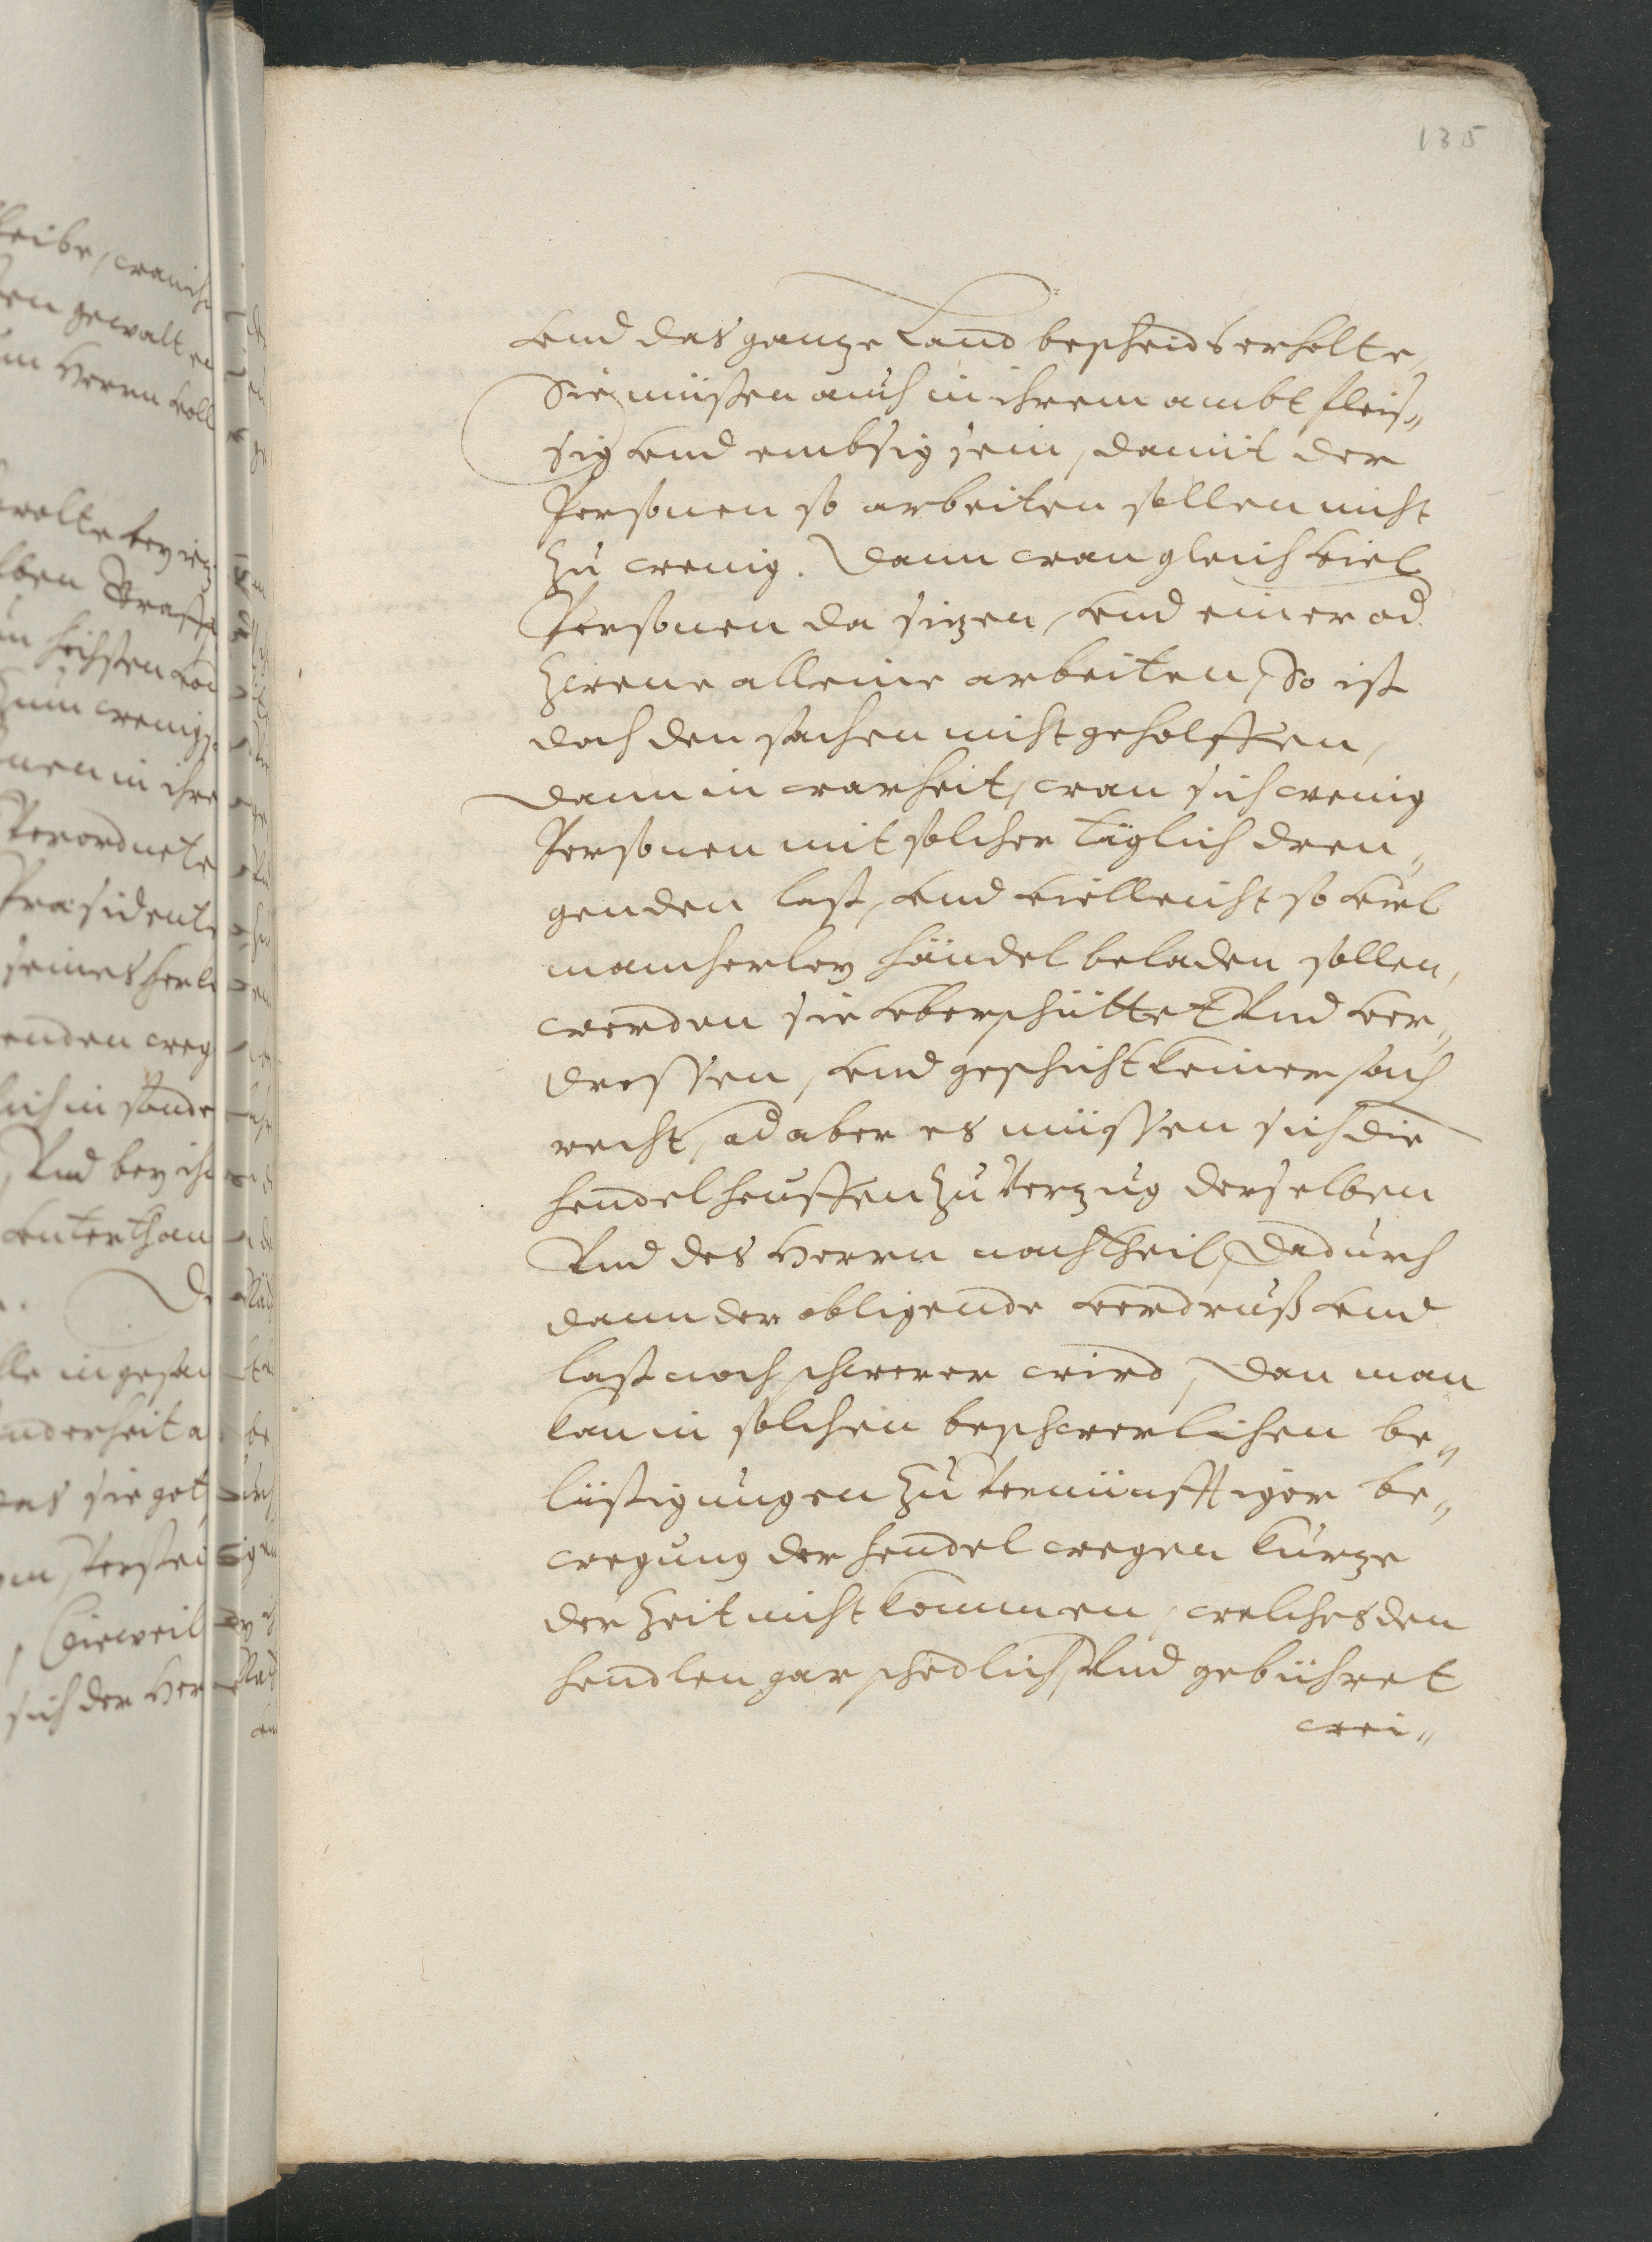 135
vnd das ganze Land bescheidts erholte,
Sie müssen auch in ihrem ambt fleis„
sig vnd embsig sein, damit der
Personen so arbeiten sollen nicht
zu wenig. Dann wan gleich viel
Personen da sizen, vnd einer od.
zwene alleine arbeiten, So ist
doch den sachen nicht geholffen,
dann in warheit, wan sich wenig
Personen mit solcher täglich dren„
genden last, vnd vielleicht so viel
mancherley händel beladen sollen,
werden sie vberschüttet Vnd ver„
drossen, vnd geschicht keiner sach
recht, od aber es müssen sich die
hendel heuffen zu Verzug derselben
Vnd des Herrn nachtheil, Dadurch
dann der obligende verdruß vnd
last noch schwerer wird, Dan man
kan in solchen beschwerlichen be„
lästigungen zu Vernünfftiger be„
wegung der hendel wegen kürze
der Zeit nicht kommen, welches den
hendlen gar schedlich, Vnd gebühret
wei„